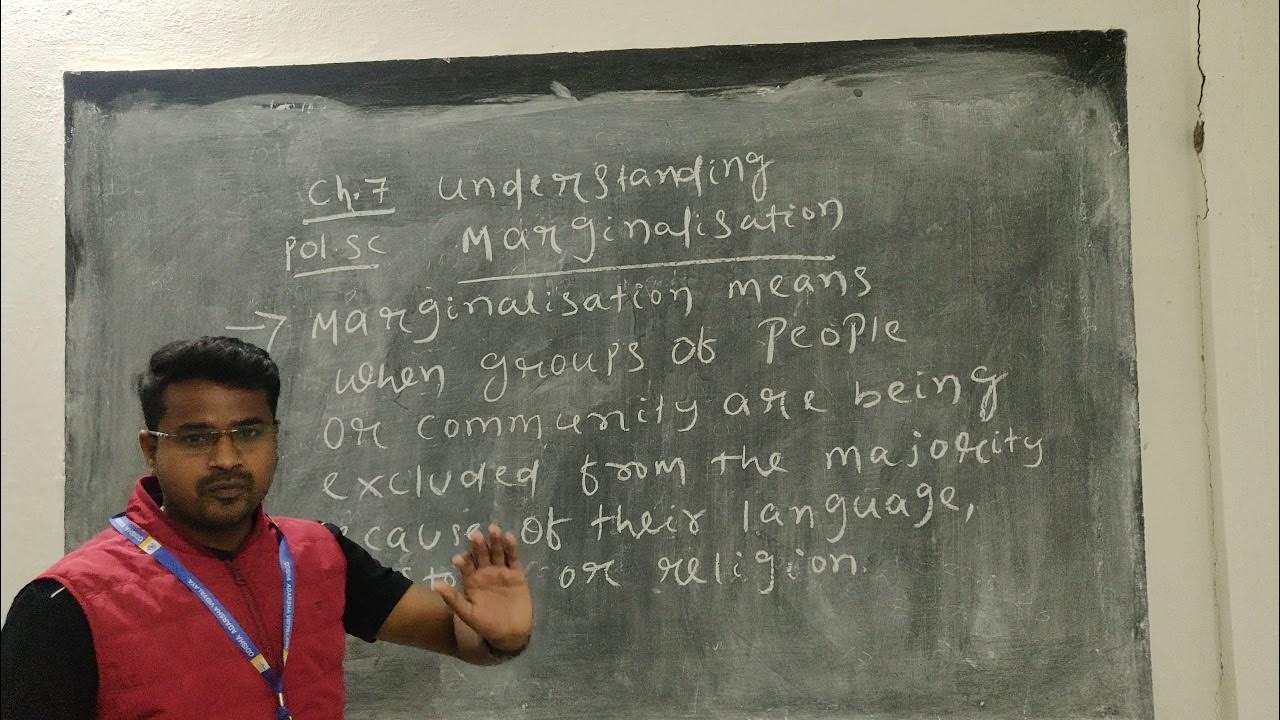 Ch.7 Understanding
Pol.Sc Marginalisation
→ Marginalisation means
when groups of People
or community are being
excluded from the majority
cause of their language,
or religion.
ODISHA ADARSHA VIDYALAYA
ODISHA ADARSHA VIDYALAYA